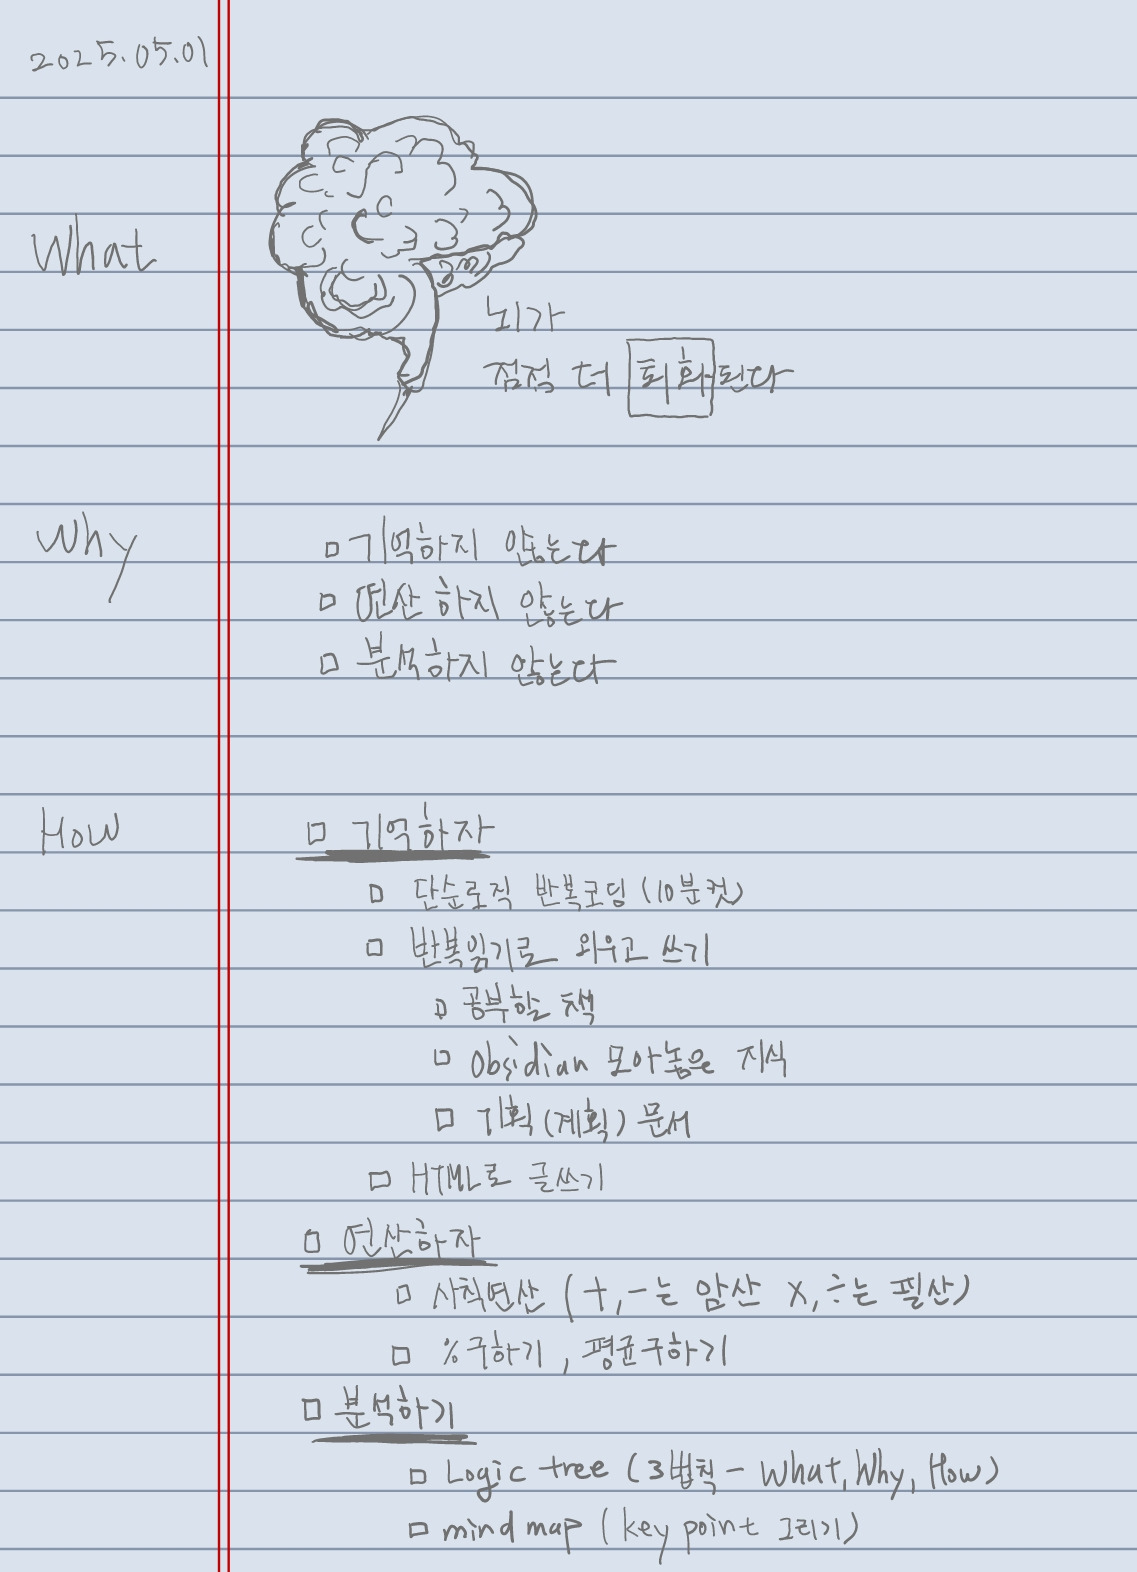 2025.05.01
What
뇌가
점점 더 퇴화된다
Why
□ 기억하지 않는다
□ 연산하지 않는다
□ 분석하지 않는다
How
□ 기억하자
□ 단순로직 반복코딩 (10분컷)
□ 반복읽기로 외우고 쓰기
□ 공부할 책
□ Obsidian 모아놓은 지식
□ 기획(계획) 문서
□ HTML로 글쓰기
□ 연산하자
□ 사칙연산 (+,-는 암산 x,÷는 필산)
□ %구하기, 평균구하기
□ 분석하기
□ Logic tree (3법칙 - What, Why, How)
□ mind map (key point 그리기)